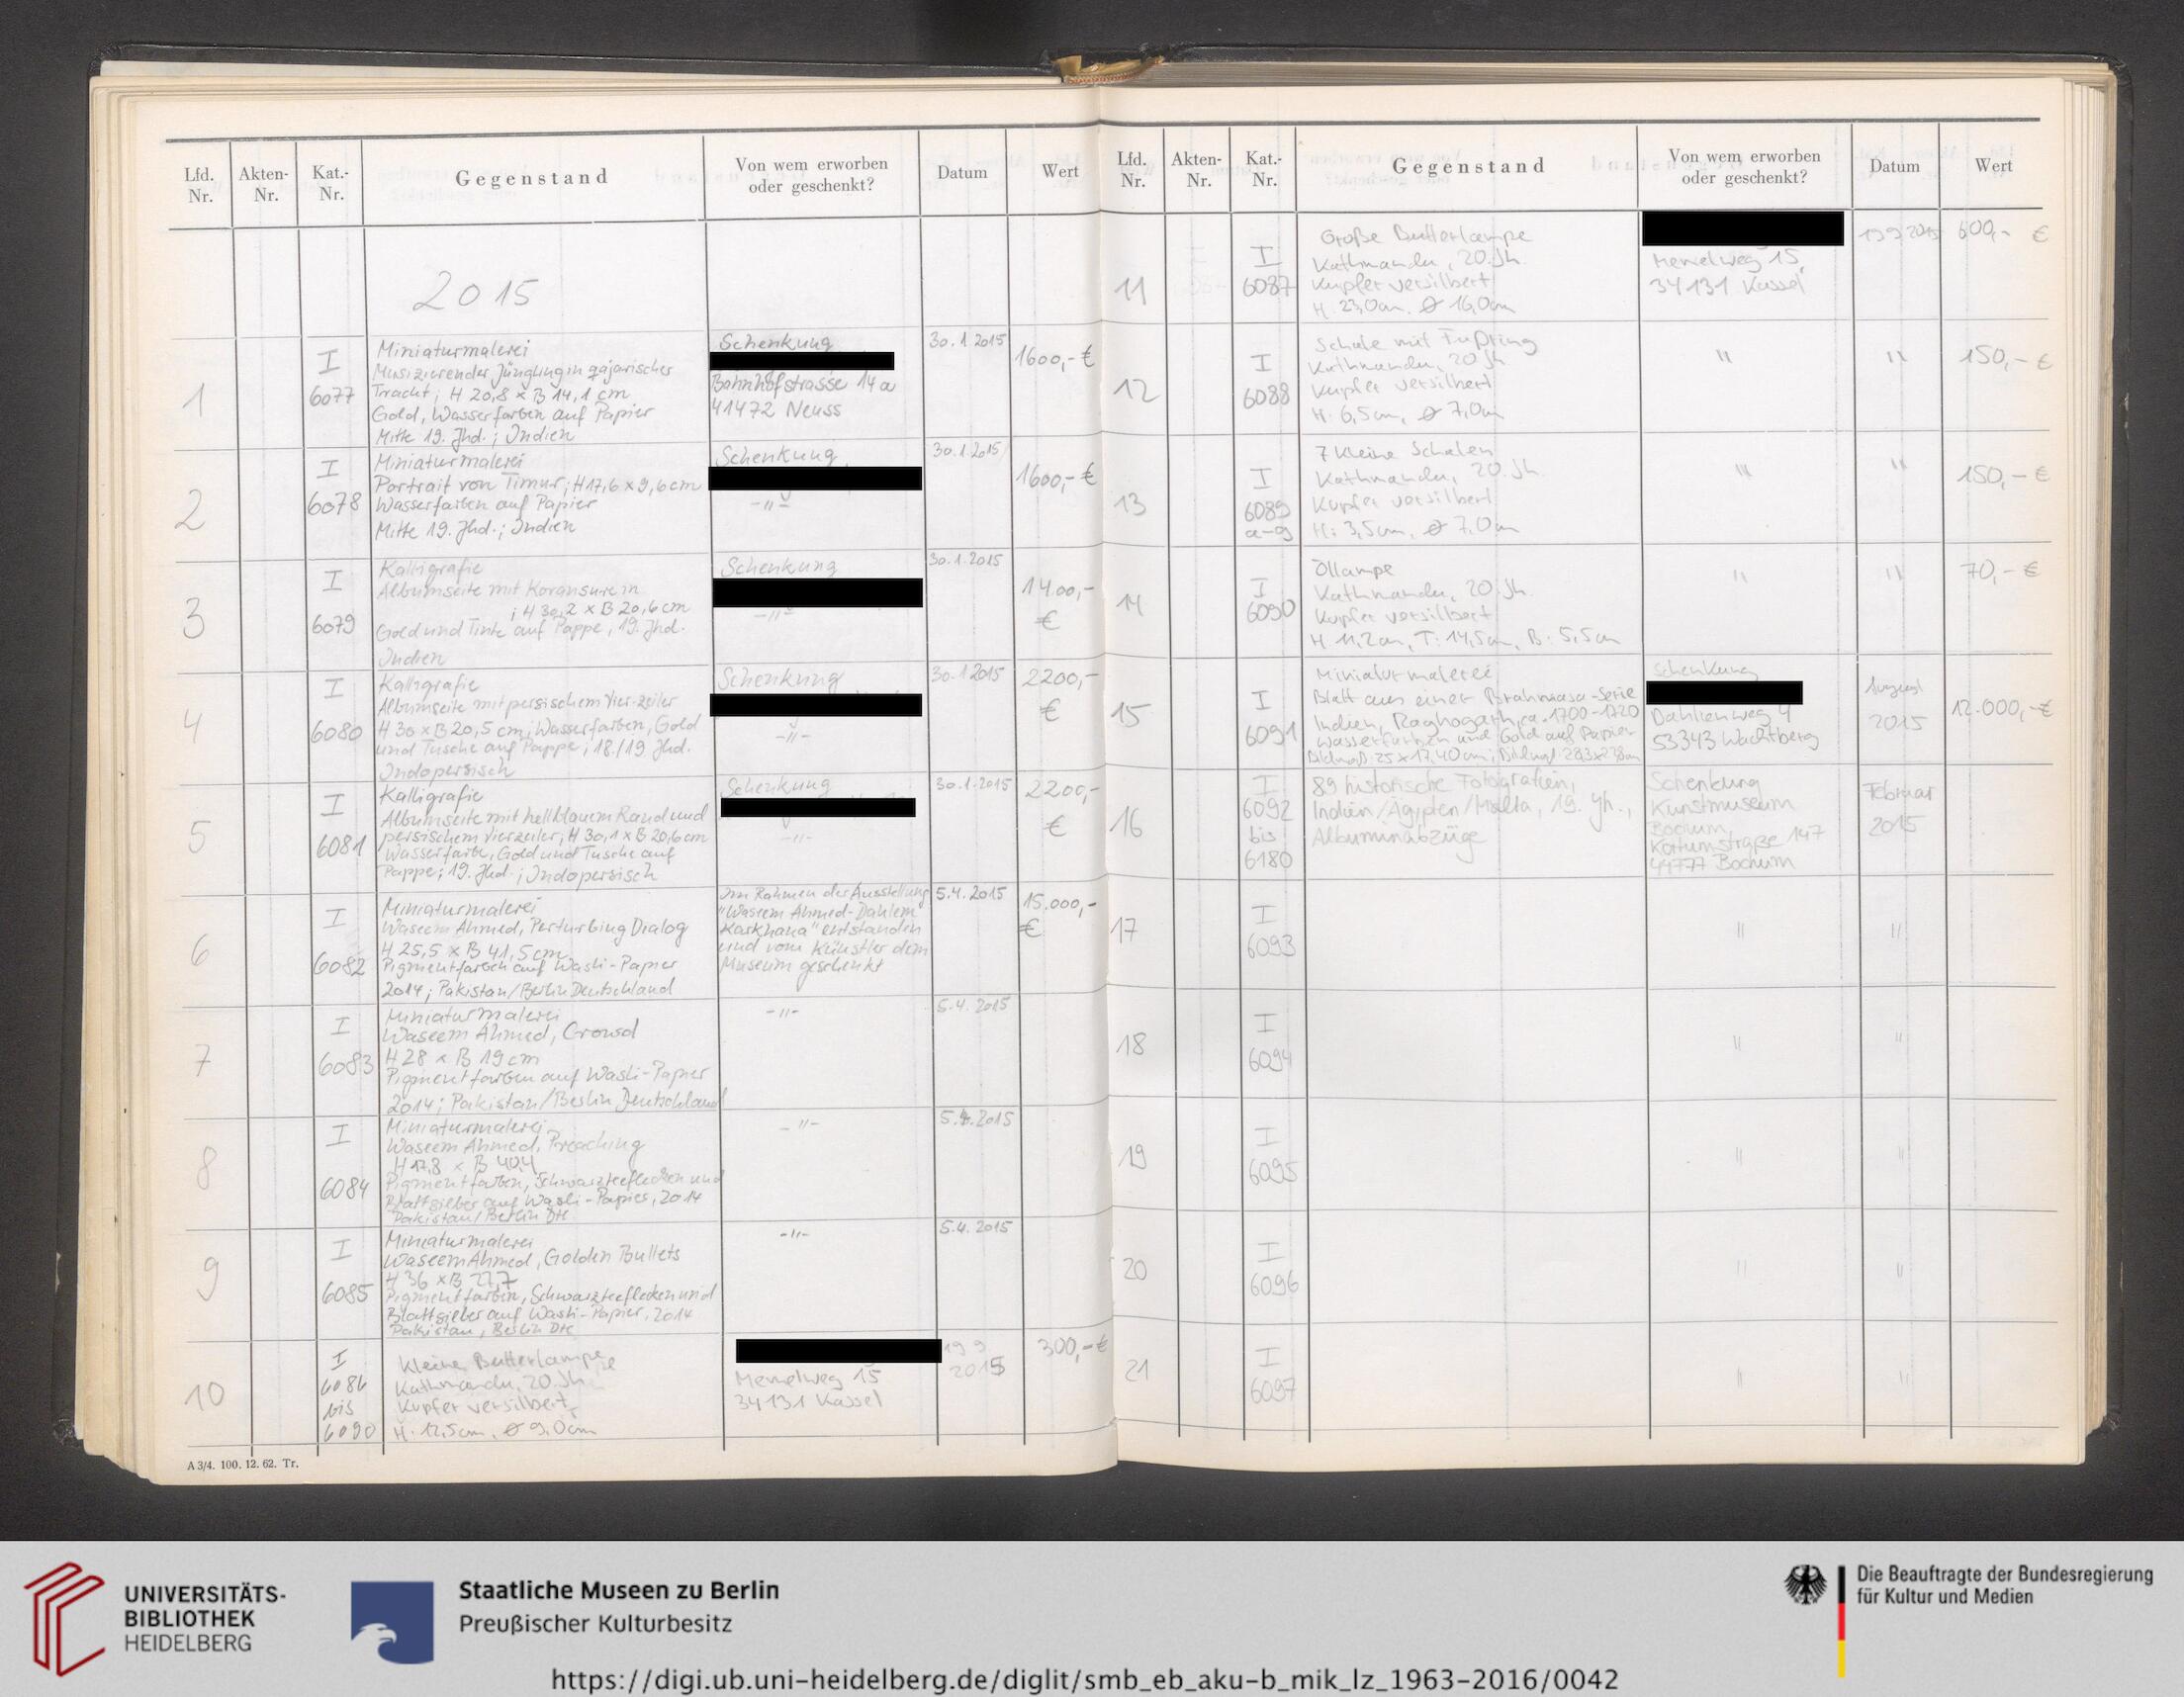 Lfd. Nr.
Akten- Nr.
Kat.- Nr.
Gegenstand
Von wem erworben oder geschenkt?
Datum
Wert
2015
1
I
6077
Miniaturmalerei
Musizierender Jüngling in qajarischer
Tracht; H 20,8 x B 14,1 cm
Gold, Wasserfarben auf Papier
Mitte 19. Jhd.; Indien
Schenkung
Bahnhofstrasse 14a
41472 Neuss
30.1.2015
1600,- €
2
I
6078
Miniaturmalerei
Portrait von Timur; H 17,6 x 9,6 cm
Wasserfarben auf Papier
Mitte 19. Jhd.; Indien
Schenkung
-"-
30.1.2015
1600,- €
3
I
6079
Kalligrafie
Albumseite mit Koransure in
; H 30,2 x B 20,6 cm
Gold und Tinte auf Pappe, 19. Jhd.
Indien
Schenkung
-"-
30.1.2015
1400,-
€
4
I
6080
Kalligrafie
Albumseite mit persischem Vier-zeiler
H 30 x B 20,5 cm; Wasserfarben, Gold
und Tusche auf Pappe; 18./19 Jhd.
Indopersisch
Schenkung
-"-
30.1.2015
2200,-
€
5
I
6081
Kalligrafie
Albumseite mit hellblauem Rand und
persischem Vierzeiler, H 30,1 x B 20,6 cm
Wasserfarbe, Gold und Tusche auf
Pappe; 19. Jhd.; Indopersisch
Schenkung
-"-
30.1.2015
2200,-
€
6
I
6082
Miniaturmalerei
Waseem Ahmed, Perturbing Dialog
H 25,5 x B 41,5 cm
Pigmentfarben auf Wasli-Papier
2014; Pakistan/Berlin Deutschland
Im Rahmen der Ausstellung
"Waseem Ahmed-Dahlem
Karkhana" entstanden
und vom Künstler dem
Museum geschenkt
5.4.2015
15.000,-
€
7
I
6083
Miniaturmalerei
Waseem Ahmed, Crowd
H 28 x B 19 cm
Pigmentfarben auf Wasli-Papier
2014; Pakistan/Berlin Deutschland
-"-
5.4.2015
8
I
6084
Miniaturmalerei
Waseem Ahmed, Preaching
H 17,8 x B 40,4
Pigmentfarben, Schwarzteeflecken und
Blattsilber auf Wasli-Papier, 2014
Pakistan/Berlin Dtl
-"-
5.4.2015
9
I
6085
Miniaturmalerei
Waseem Ahmed, Golden Bullets
H 36 x B 27,7
Pigmentfarben, Schwarzteeflecken und
Blattsilber auf Wasli-Papier, 2014
Pakistan, Berlin Dtl
-"-
5.4.2015
10
I
6086
bis
6090
Kleine Butterlampe
Kathmandu, 20. Jh
Kupfer versilbert,
H. 12,5 cm, Ø 9,0 cm
15
34131 Kassel
19 9
2015
300,- €
A 3/4. 100. 12. 62. Tr.
Lfd. Nr.
Akten- Nr.
Kat.- Nr.
Gegenstand
Von wem erworben oder geschenkt?
Datum
Wert
11
I
6087
Große Butterlampe
Kathmandu, 20. Jh.
Kupfer versilbert
H. 23,0 cm. Ø 16,0 cm
15,
34131 Kassel
19 9 2015
600,- €
12
I
6088
Schale mit Fußring
Kathmandu, 20 Jh
Kupfer versilbert
H. 6,5 cm, Ø 7,0 cm
"
"
150,- €
13
I
6089
a-g
7 Kleine Schalen
Kathmandu, 20. Jh.
Kupfer versilbert
H: 3,5 cm, Ø 7,0 cm
"
"
150,- €
14
I
6090
Öllampe
Kathmandu, 20 Jh.
Kupfer versilbert
H 11,2 cm, T: 14,5 cm, B: 5,5 cm
"
"
70,- €
15
I
6091
Miniaturmalerei
Blatt aus einer Barahmasa-Serie
Indien, Raghogarh, ca. 1700-1720
Wasserfarben und Gold auf Papier
Schenkung
Dahlienweg 4
53343 Wachtberg
August
2015
12.000,- €
16
I
6092
bis
6180
89 historische Fotografien,
Indien/Ägypten/Malta, 19. Jh.,
Albuminabzüge
Schenkung
Kunstmuseum
Bochum
Kortumstraße 147
44777 Bochum
Februar
2015
17
I
6093
"
"
18
I
6094
"
"
19
I
6095
"
"
20
I
6096
"
"
21
I
6097
"
"
UNIVERSITÄTS-
BIBLIOTHEK
HEIDELBERG
Staatliche Museen zu Berlin
Preußischer Kulturbesitz
Die Beauftragte der Bundesregierung
für Kultur und Medien
https://digi.ub.uni-heidelberg.de/diglit/smb_eb_aku-b_mik_lz_1963-2016/0042